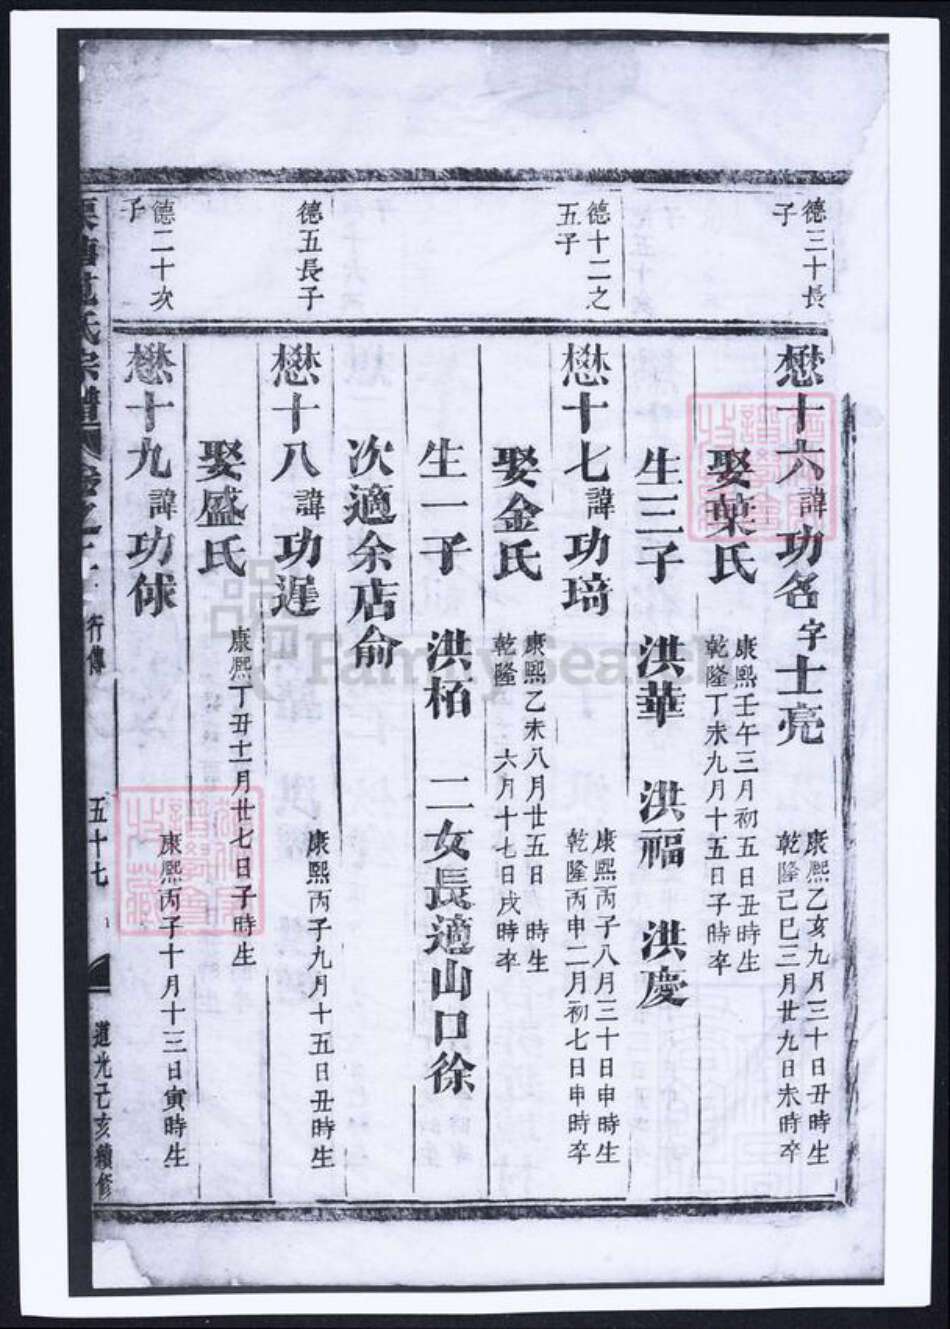 德三十長
子
懋十六諱功名字士亮
康熙乙亥九月三十日丑時生
乾隆己巳三月廿九日未時卒
娶葉氏
康熙壬午三月初五日丑時生
乾隆丁未九月十五日子時卒
生三子 洪華 洪福 洪慶
德十二之
五子
懋十七諱功琦
康熙丙子八月三十日申時生
乾隆丙申二月初七日申時卒
娶金氏
康熙乙未八月廿五日 時生
乾隆 六月十七日戌時卒
生一子 洪柏 二女長適山口徐
次適余店俞
德五長子
懋十八諱功遲
康熙丙子九月十五日丑時生
娶盛氏
康熙丁丑十一月廿七日子時生
德二十次
子
懋十九諱功俅
康熙丙子十月十三日寅時生
氏宗譜 卷之 行傳 五十七 道光己亥續修
FamilySearch